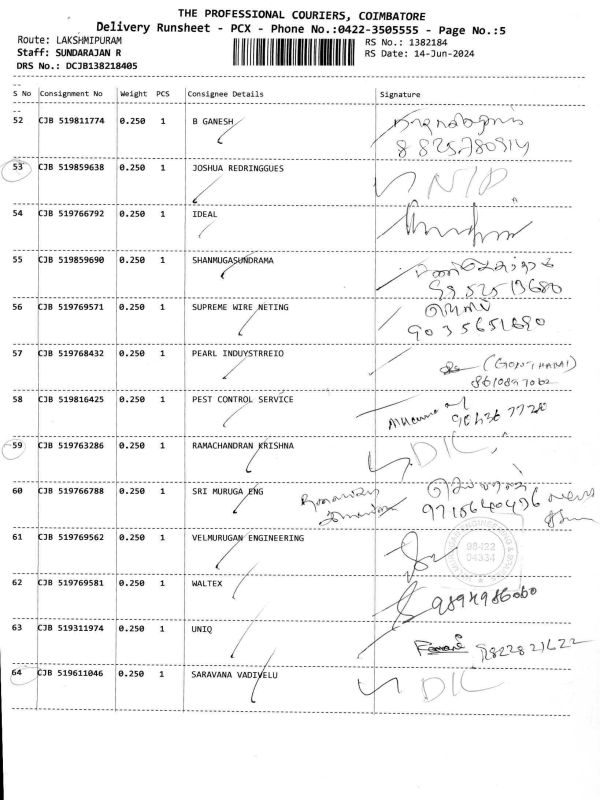 THE PROFESSIONAL COURIERS, COIMBATORE
Delivery Runsheet - PCX - Phone No.:0422-3505555 - Page No.:5
Route: LAKSHMIPURAM RS No.: 1382184
Staff: SUNDARAJAN R RS Date: 14-Jun-2024
DRS No.: DCJB138218405
S No Consignment No Weight PCS Consignee Details Signature
52 CJB 519811774 0.250 1 B GANESH
8825780914
53 CJB 519859638 0.250 1 JOSHUA REDRINGGUES N/D
54 CJB 519766792 0.250 1 IDEAL
55 CJB 519859690 0.250 1 SHANMUGASUNDRAMA
9952513680
56 CJB 519769571 0.250 1 SUPREME WIRE NETING
9035651690
57 CJB 519768432 0.250 1 PEARL INDUYSTRREIO
8610897062
58 CJB 519816425 0.250 1 PEST CONTROL SERVICE
59 CJB 519763286 0.250 1 RAMACHANDRAN KRISHNA DIL
60 CJB 519766788 0.250 1 SRI MURUGA ENG
9715640496
61 CJB 519769562 0.250 1 VELMURUGAN ENGINEERING
98422
04334
62 CJB 519769581 0.250 1 WALTEX 9894986060
63 CJB 519311974 0.250 1 UNIQ
64 CJB 519611046 0.250 1 SARAVANA VADIVELU DIL